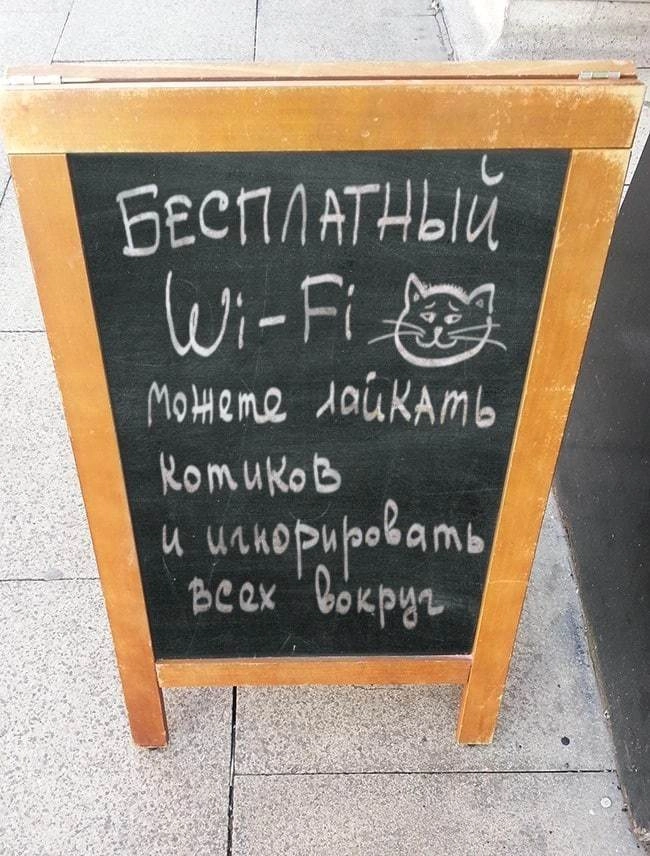 БЕСПЛАТНЫЙ
Wi-Fi
можете лайкать
котиков
и игнорировать
всех вокруг